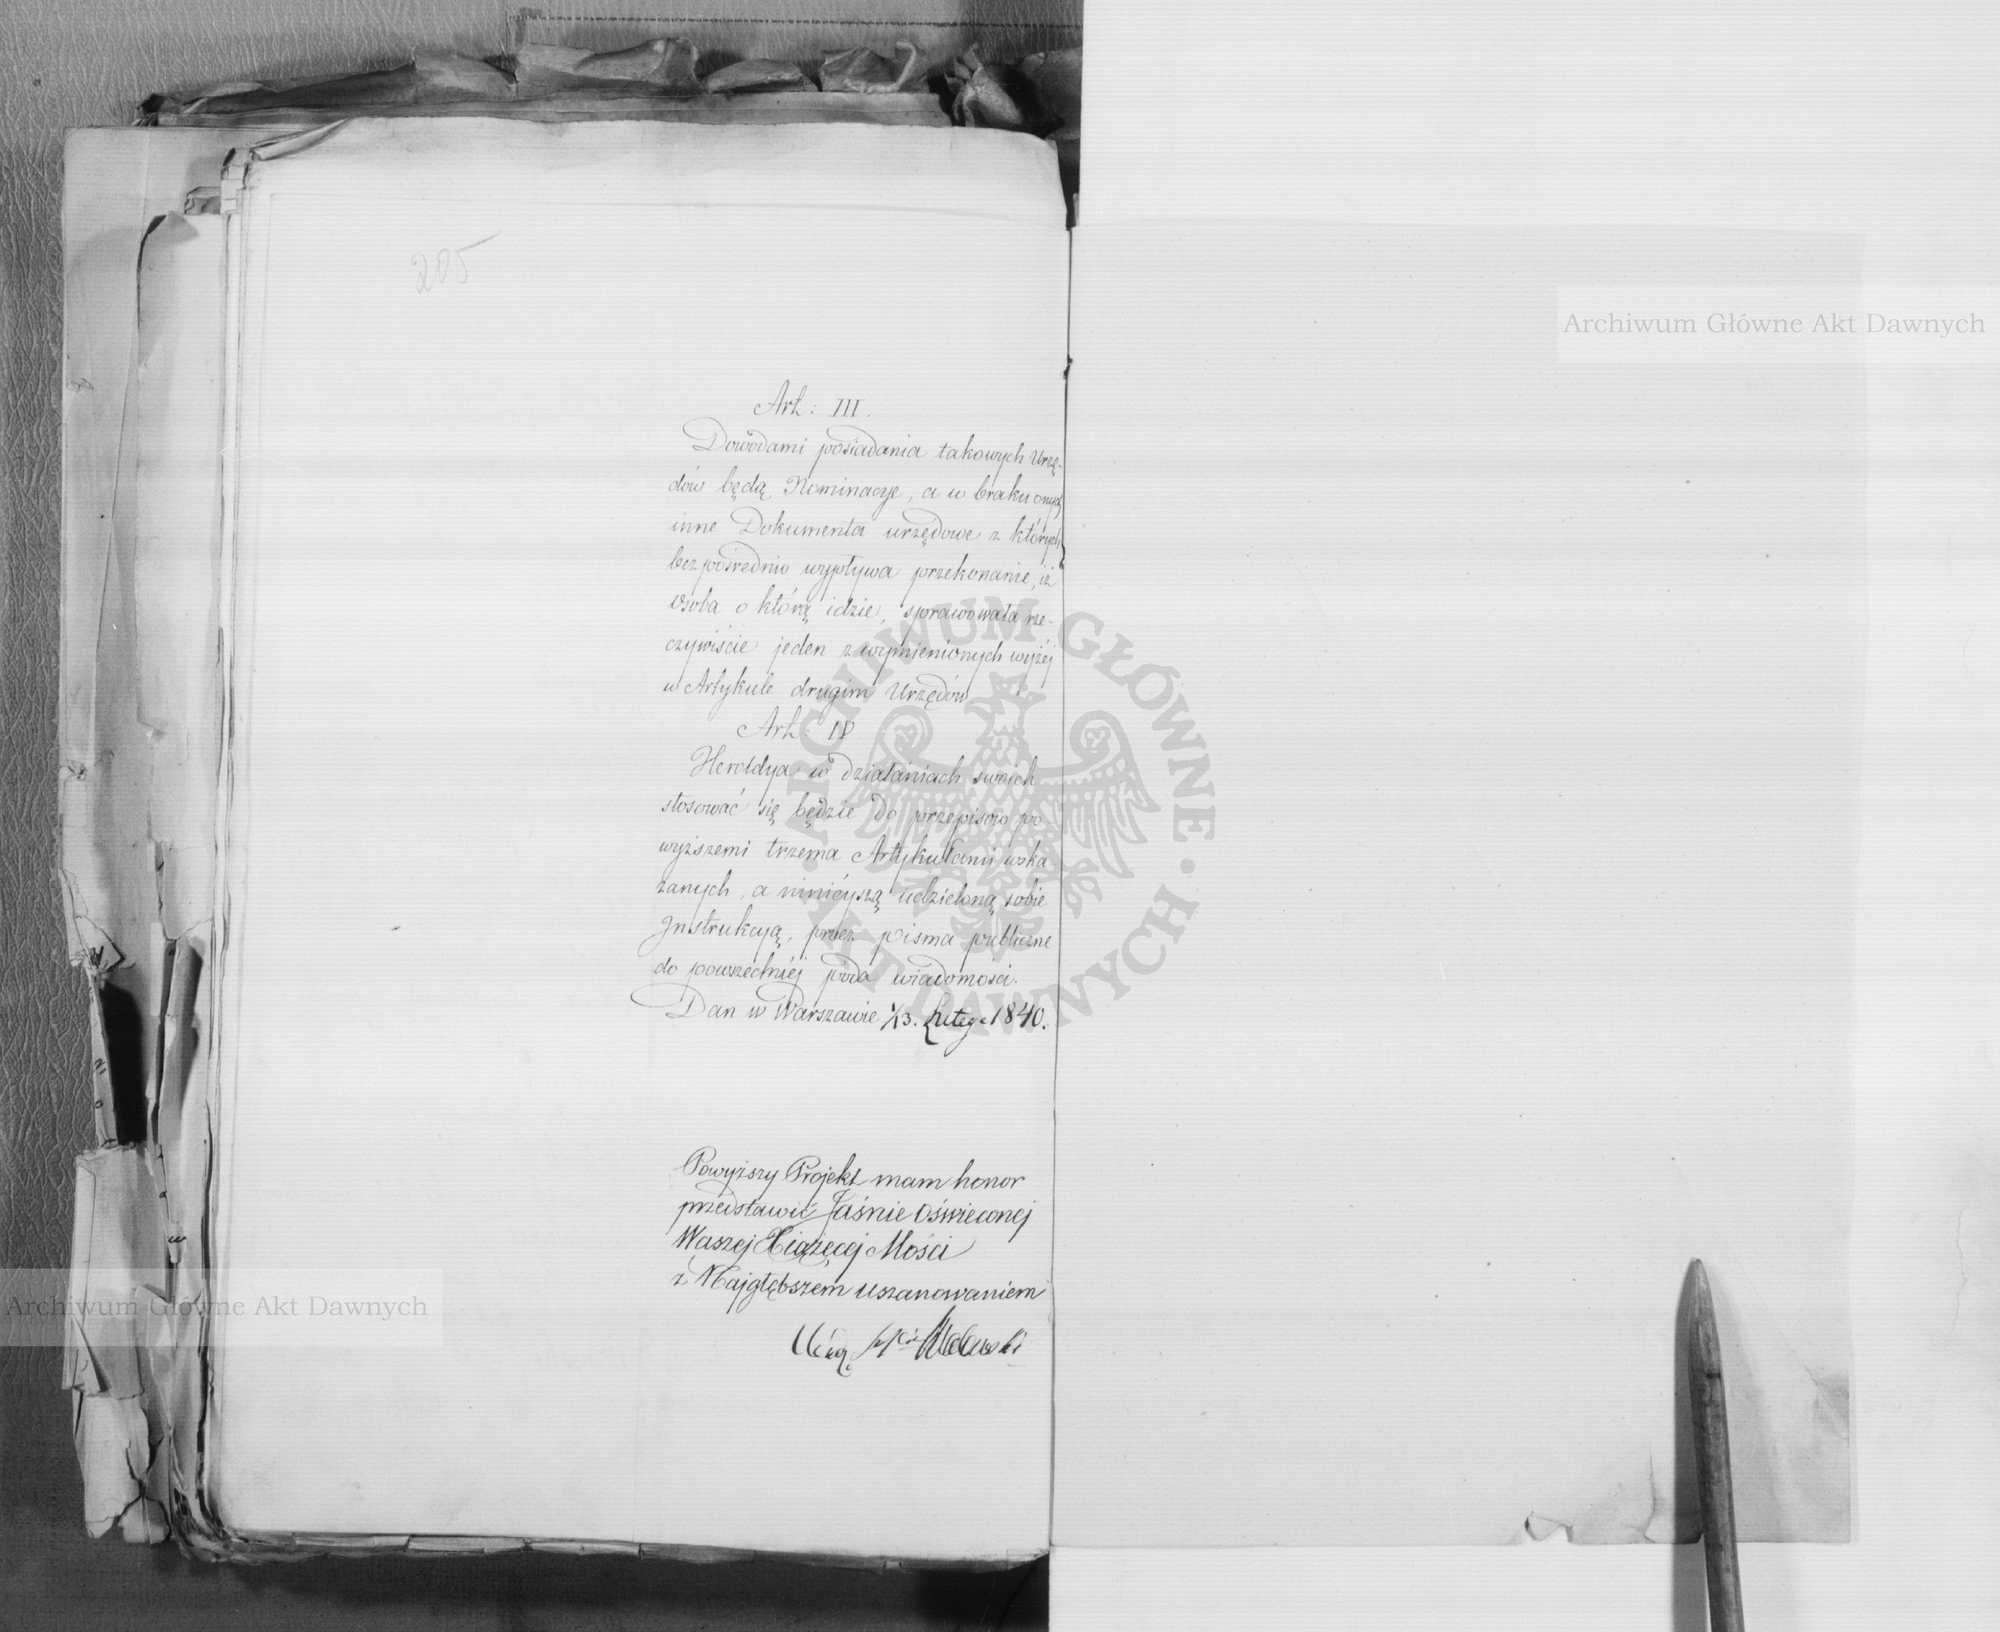 205
Art: III.
Dowodami posiadania takowych Urzę-
dów będą Nominacye, a w braku onych
inne Dokumenta urzędowe z których
bezpośrednio wypływa przekonanie, iż
osoba o którą idzie, sprawowała rze-
czywiście jeden z wymienionych wyżej
w Artykule drugim Urzędów
Art: IV
Heroldya w działaniach swoich
stosować się będzie do przepisów po
wyższemi trzema Artykułami wska-
zanych, a niniéyszą udzieloną sobie
Instrukcyą, przez pisma publiczne
do powszechnéj poda wiadomości.
Dan w Warszawie 1/13. Lutego 1840.
Powyższy Projekt mam honor
przedstawić Jaśnie Oświeconej
Waszej Xiążęcej Mości
z Najgłębszem uszanowaniem
Archiwum Główne Akt Dawnych
Archiwum Główne Akt Dawnych
ARCHIWUM GŁÓWNE · AKT DAWNYCH ·